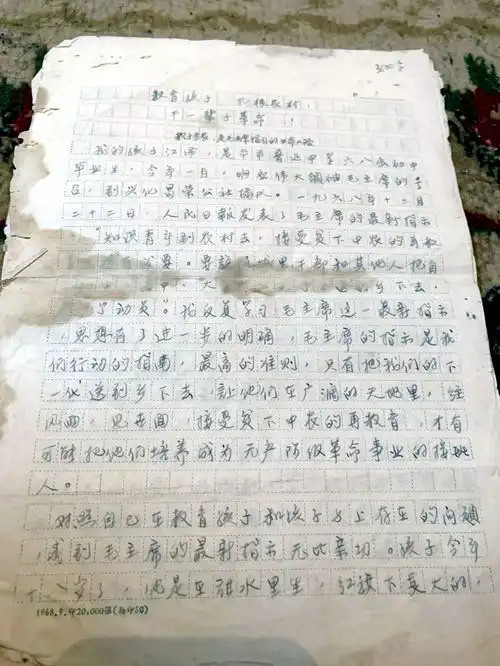 教育孩子 下农村，
干一辈子革命！
我的孩子江南，是宁市 六八届初中
毕业生，今年一月，响应伟大领袖毛主席的号
召，到兴化昌荣公社插队。一九六八年十二月
二十二日，人民日报发表了毛主席的最新指示
"知识青年到农村去，接受贫下中农的再教
要。要说 城里干部和其他人把自
中、大 乡下去，
了动员"。我反复学习毛主席这一最新指示
，思想有了进一步的明确，毛主席的指示是我
们行动的指南，最高的准则，只有把我们的下
一代送到乡下去，让他们在广阔的天地里，经
风雨，见世面，接受贫下中农的再教育，才有
可能把他们培养成为无产阶级革命事业的接班
人。
对照自己在教育孩子和孩子身上存在的问题
，感到毛主席的最新指示无比亲切。孩子今年
十八岁了，他是在甜水里生，红旗下长大的，
1968.9.印20,000张